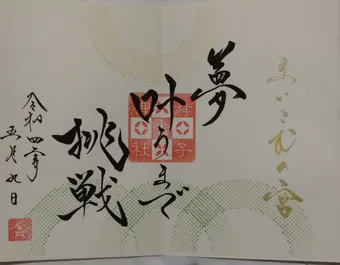 まいこ 宮
夢
叶うまで
挑戦
舞子
神社
令和四年
五月九日